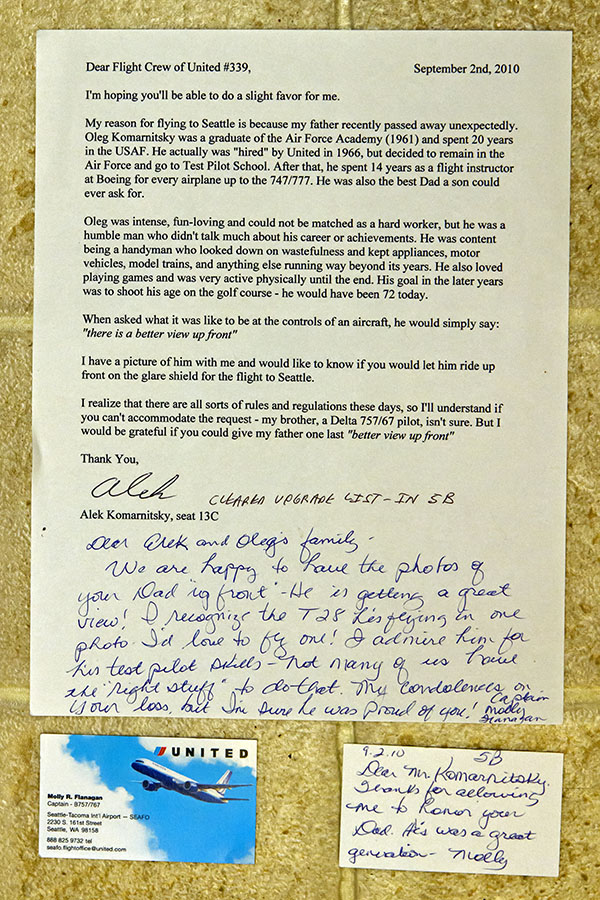 Dear Flight Crew of United #339, September 2nd, 2010
I'm hoping you'll be able to do a slight favor for me.
My reason for flying to Seattle is because my father recently passed away unexpectedly.
Oleg Komarnitsky was a graduate of the Air Force Academy (1961) and spent 20 years
in the USAF. He actually was "hired" by United in 1966, but decided to remain in the
Air Force and go to Test Pilot School. After that, he spent 14 years as a flight instructor
at Boeing for every airplane up to the 747/777. He was also the best Dad a son could
ever ask for.
Oleg was intense, fun-loving and could not be matched as a hard worker, but he was a
humble man who didn't talk much about his career or achievements. He was content
being a handyman who looked down on wastefulness and kept appliances, motor
vehicles, model trains, and anything else running way beyond its years. He also loved
playing games and was very active physically until the end. His goal in the later years
was to shoot his age on the golf course - he would have been 72 today.
When asked what it was like to be at the controls of an aircraft, he would simply say:
"there is a better view up front"
I have a picture of him with me and would like to know if you would let him ride up
front on the glare shield for the flight to Seattle.
I realize that there are all sorts of rules and regulations these days, so I'll understand if
you can't accommodate the request - my brother, a Delta 757/67 pilot, isn't sure. But I
would be grateful if you could give my father one last "better view up front"
Thank You,
Alek CLEARED UPGRADE LIST - IN 5B
Alek Komarnitsky, seat 13C
Dear Alek and Oleg's family -
We are happy to have the photos of
your Dad "up front" - He is getting a great
view! I recognize the T28 he's flying in one
photo. I'd love to fly one! I admire him for
his test pilot skills - not many of us have
the "right stuff" to do that. My condolences on
your loss, but I'm sure he was proud of you! Captain
Molly
Flanagan
UNITED
Molly R. Flanagan
Captain - B757/767
Seattle-Tacoma Int'l Airport — SEAFO
2230 S. 161st Street
Seattle, WA 98158
888 825 9732 tel
seafo.flightoffice@united.com
9.2.10 5B
Dear Mr. Komarnitsky,
Thanks for allowing
me to honor your
Dad. His was a great
generation - Molly